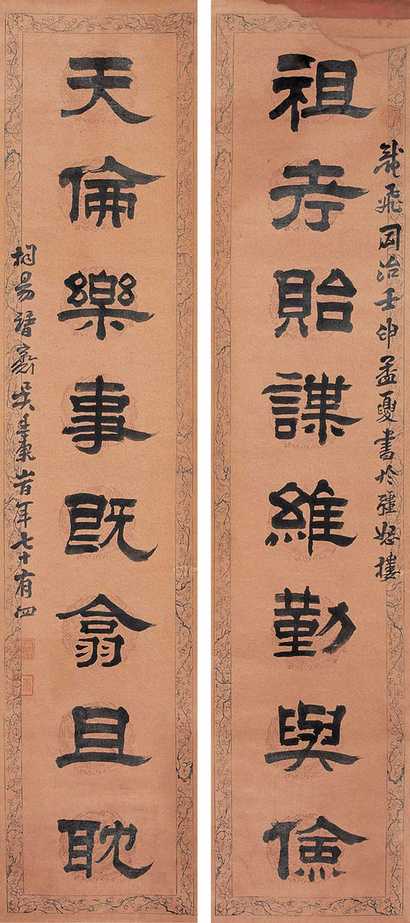 龍飛同治壬申孟夏書於強恕樓
祖考貽謀維勤與儉
天倫樂事既翕且耽
吳廷康旹年七十有四